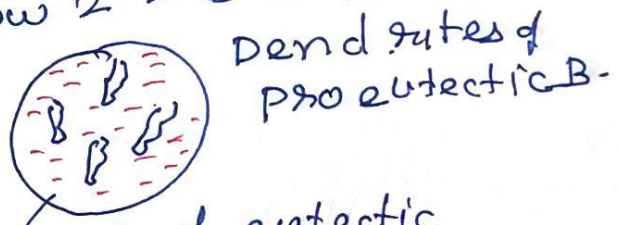 Dendrites of
Proeutectic B.
eutectic